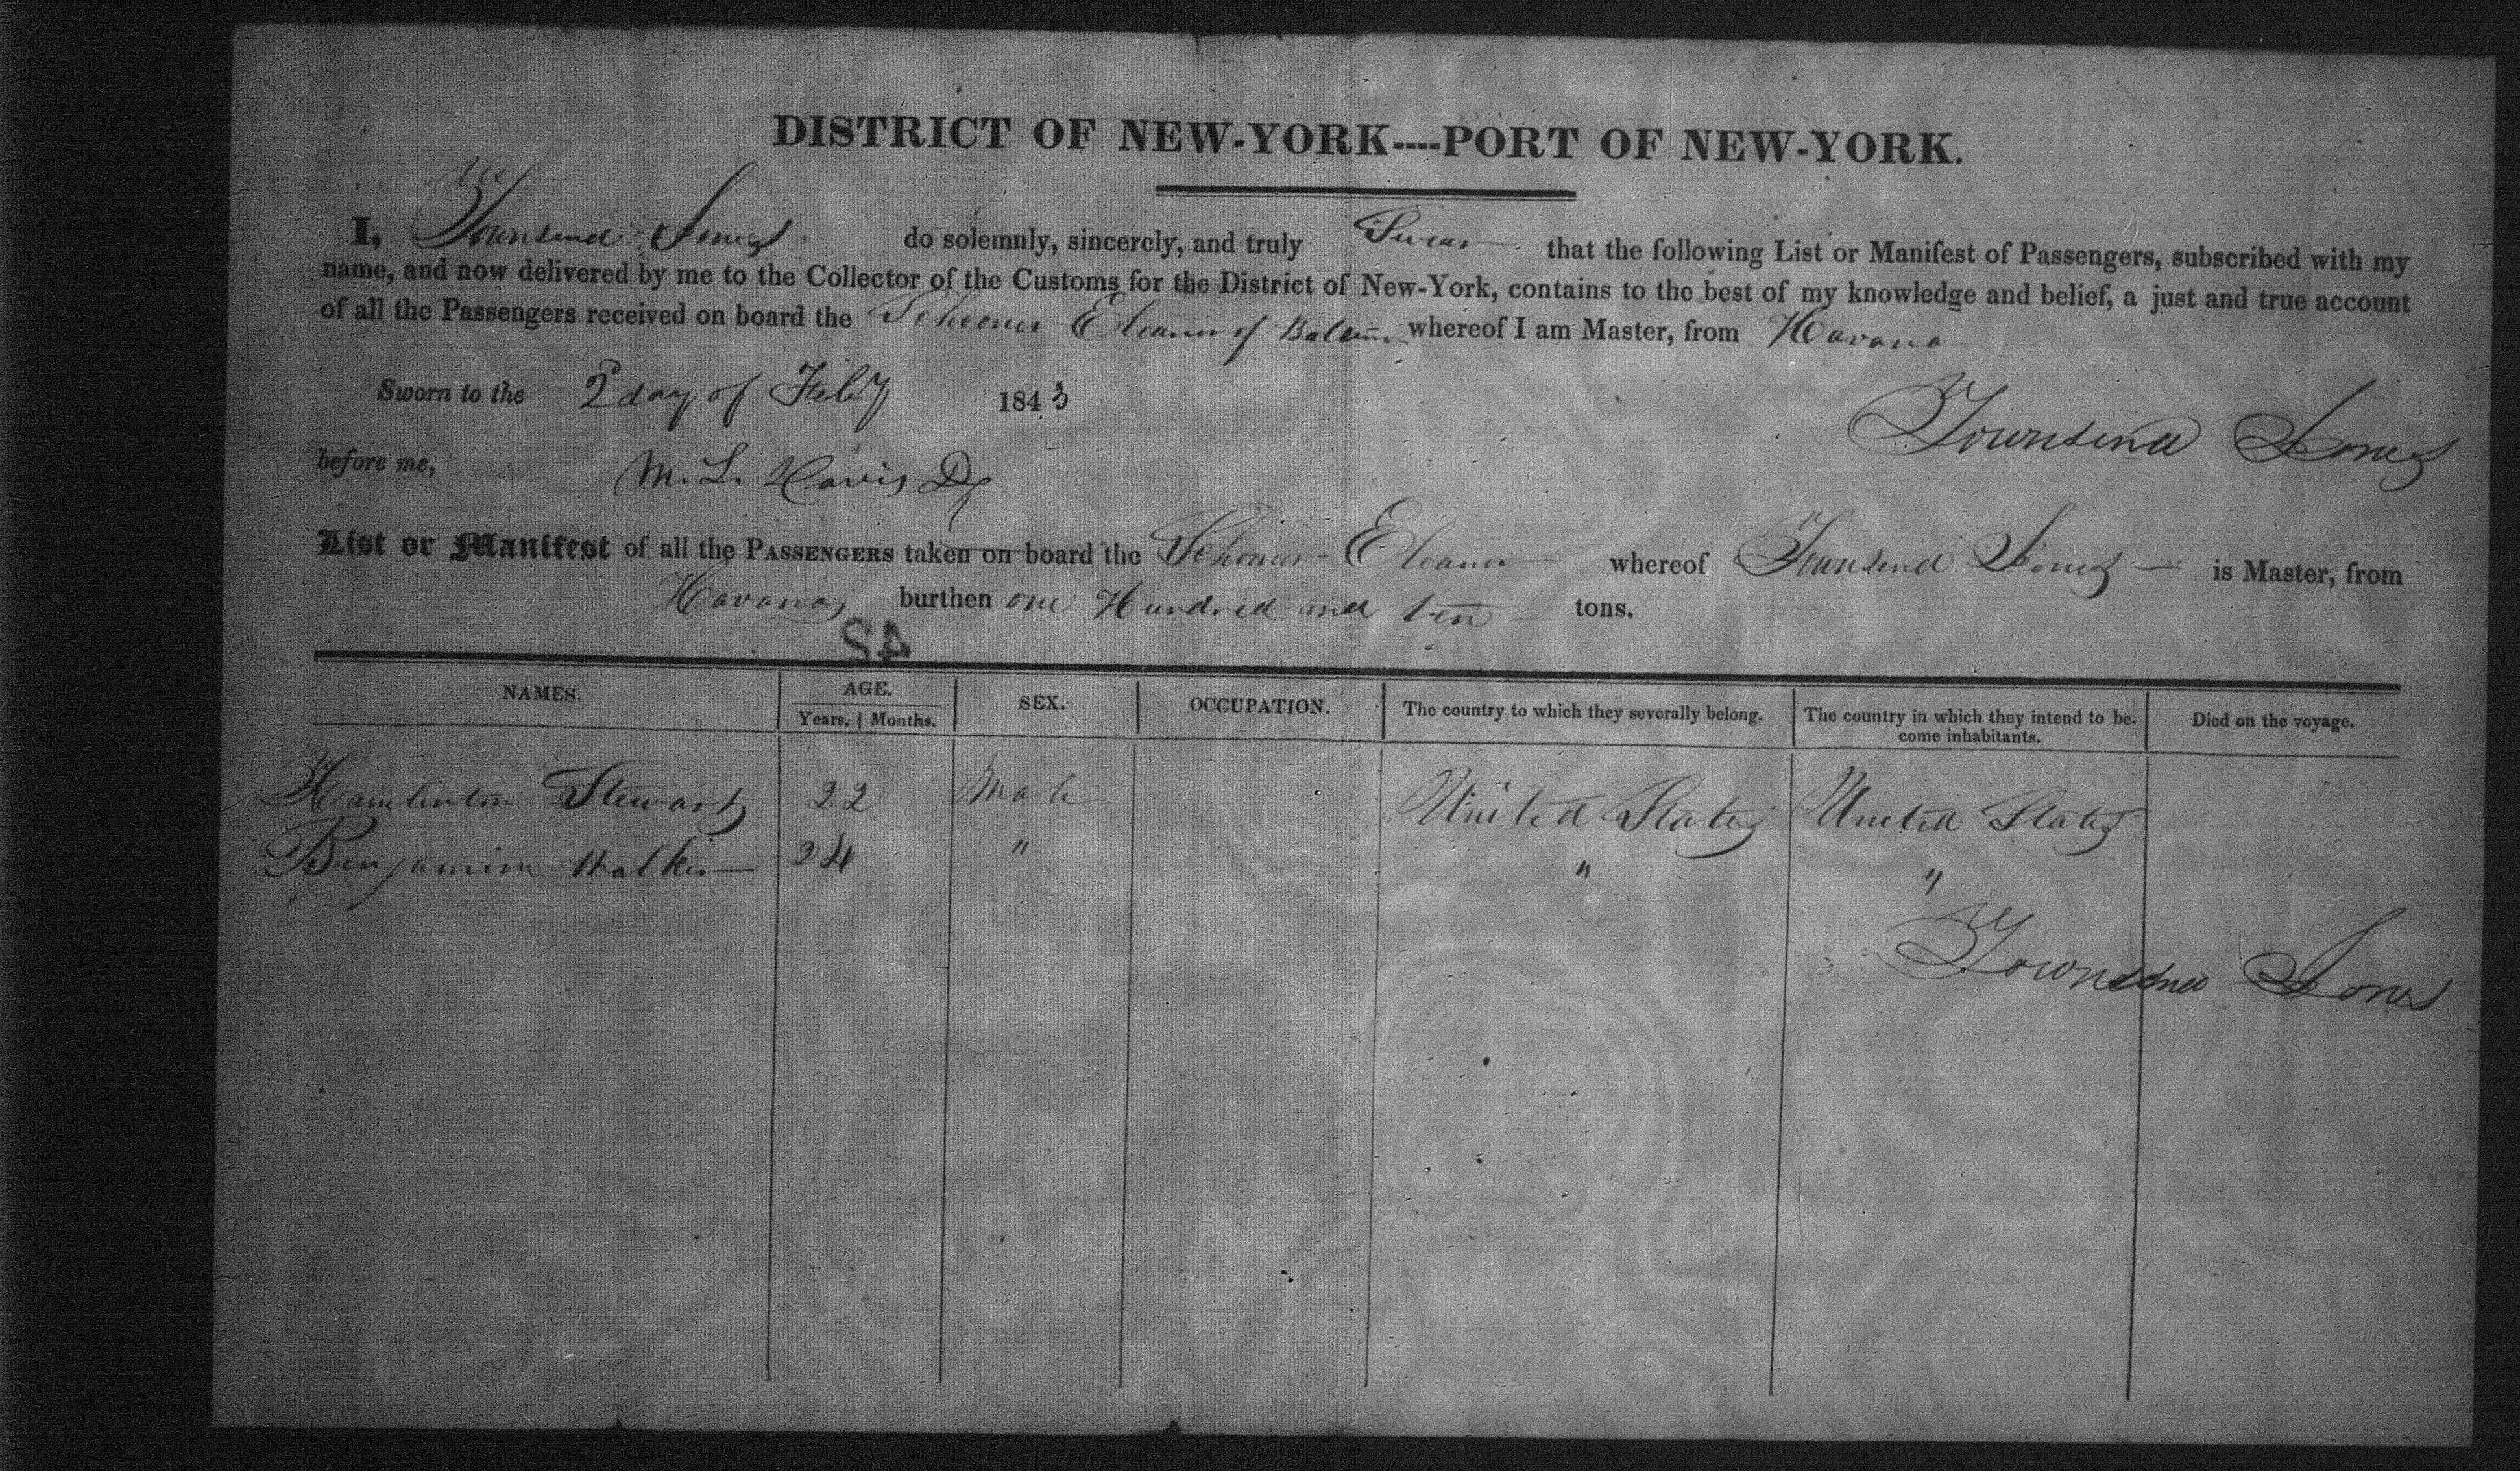 DISTRICT OF NEW-YORK----PORT OF NEW-YORK.
I, Townsend Jones do solemnly, sincerely, and truly Swear that the following List or Manifest of Passengers, subscribed with my
name, and now delivered by me to the Collector of the Customs for the District of New-York, contains to the best of my knowledge and belief, a just and true account
of all the Passengers received on board the Schooner Eleanor of whereof I am Master, from Havana
Sworn to the 2d day of Feby 1843
Townsend Jones
before me, M. L. Davis Dy
List or Manifest of all the PASSENGERS taken on board the Schooner Eleanor whereof Townsend Jones is Master, from
Havana, burthen one Hundred and ten tons.
42
NAMES. AGE. SEX. OCCUPATION. The country to which they severally belong. The country in which they intend to be- Died on the voyage.
Years. Months. come inhabitants.
Stewart 22 Male United States United States
Benjamin Walker 24 " " "
Townsend Jones